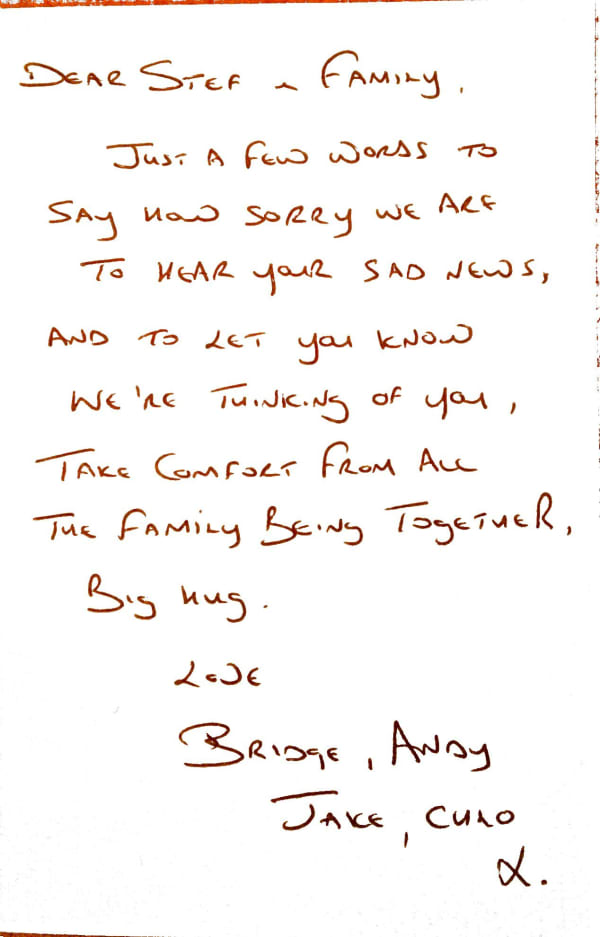 DEAR STEF & FAMILY,
JUST A FEW WORDS TO
SAY HOW SORRY WE ARE
TO HEAR YOUR SAD NEWS,
AND TO LET YOU KNOW
WE'RE THINKING OF YOU,
TAKE COMFORT FROM ALL
THE FAMILY BEING TOGETHER,
BIG HUG.
LOVE
BRIDGE, ANDY
JAKE, CHLO
X.